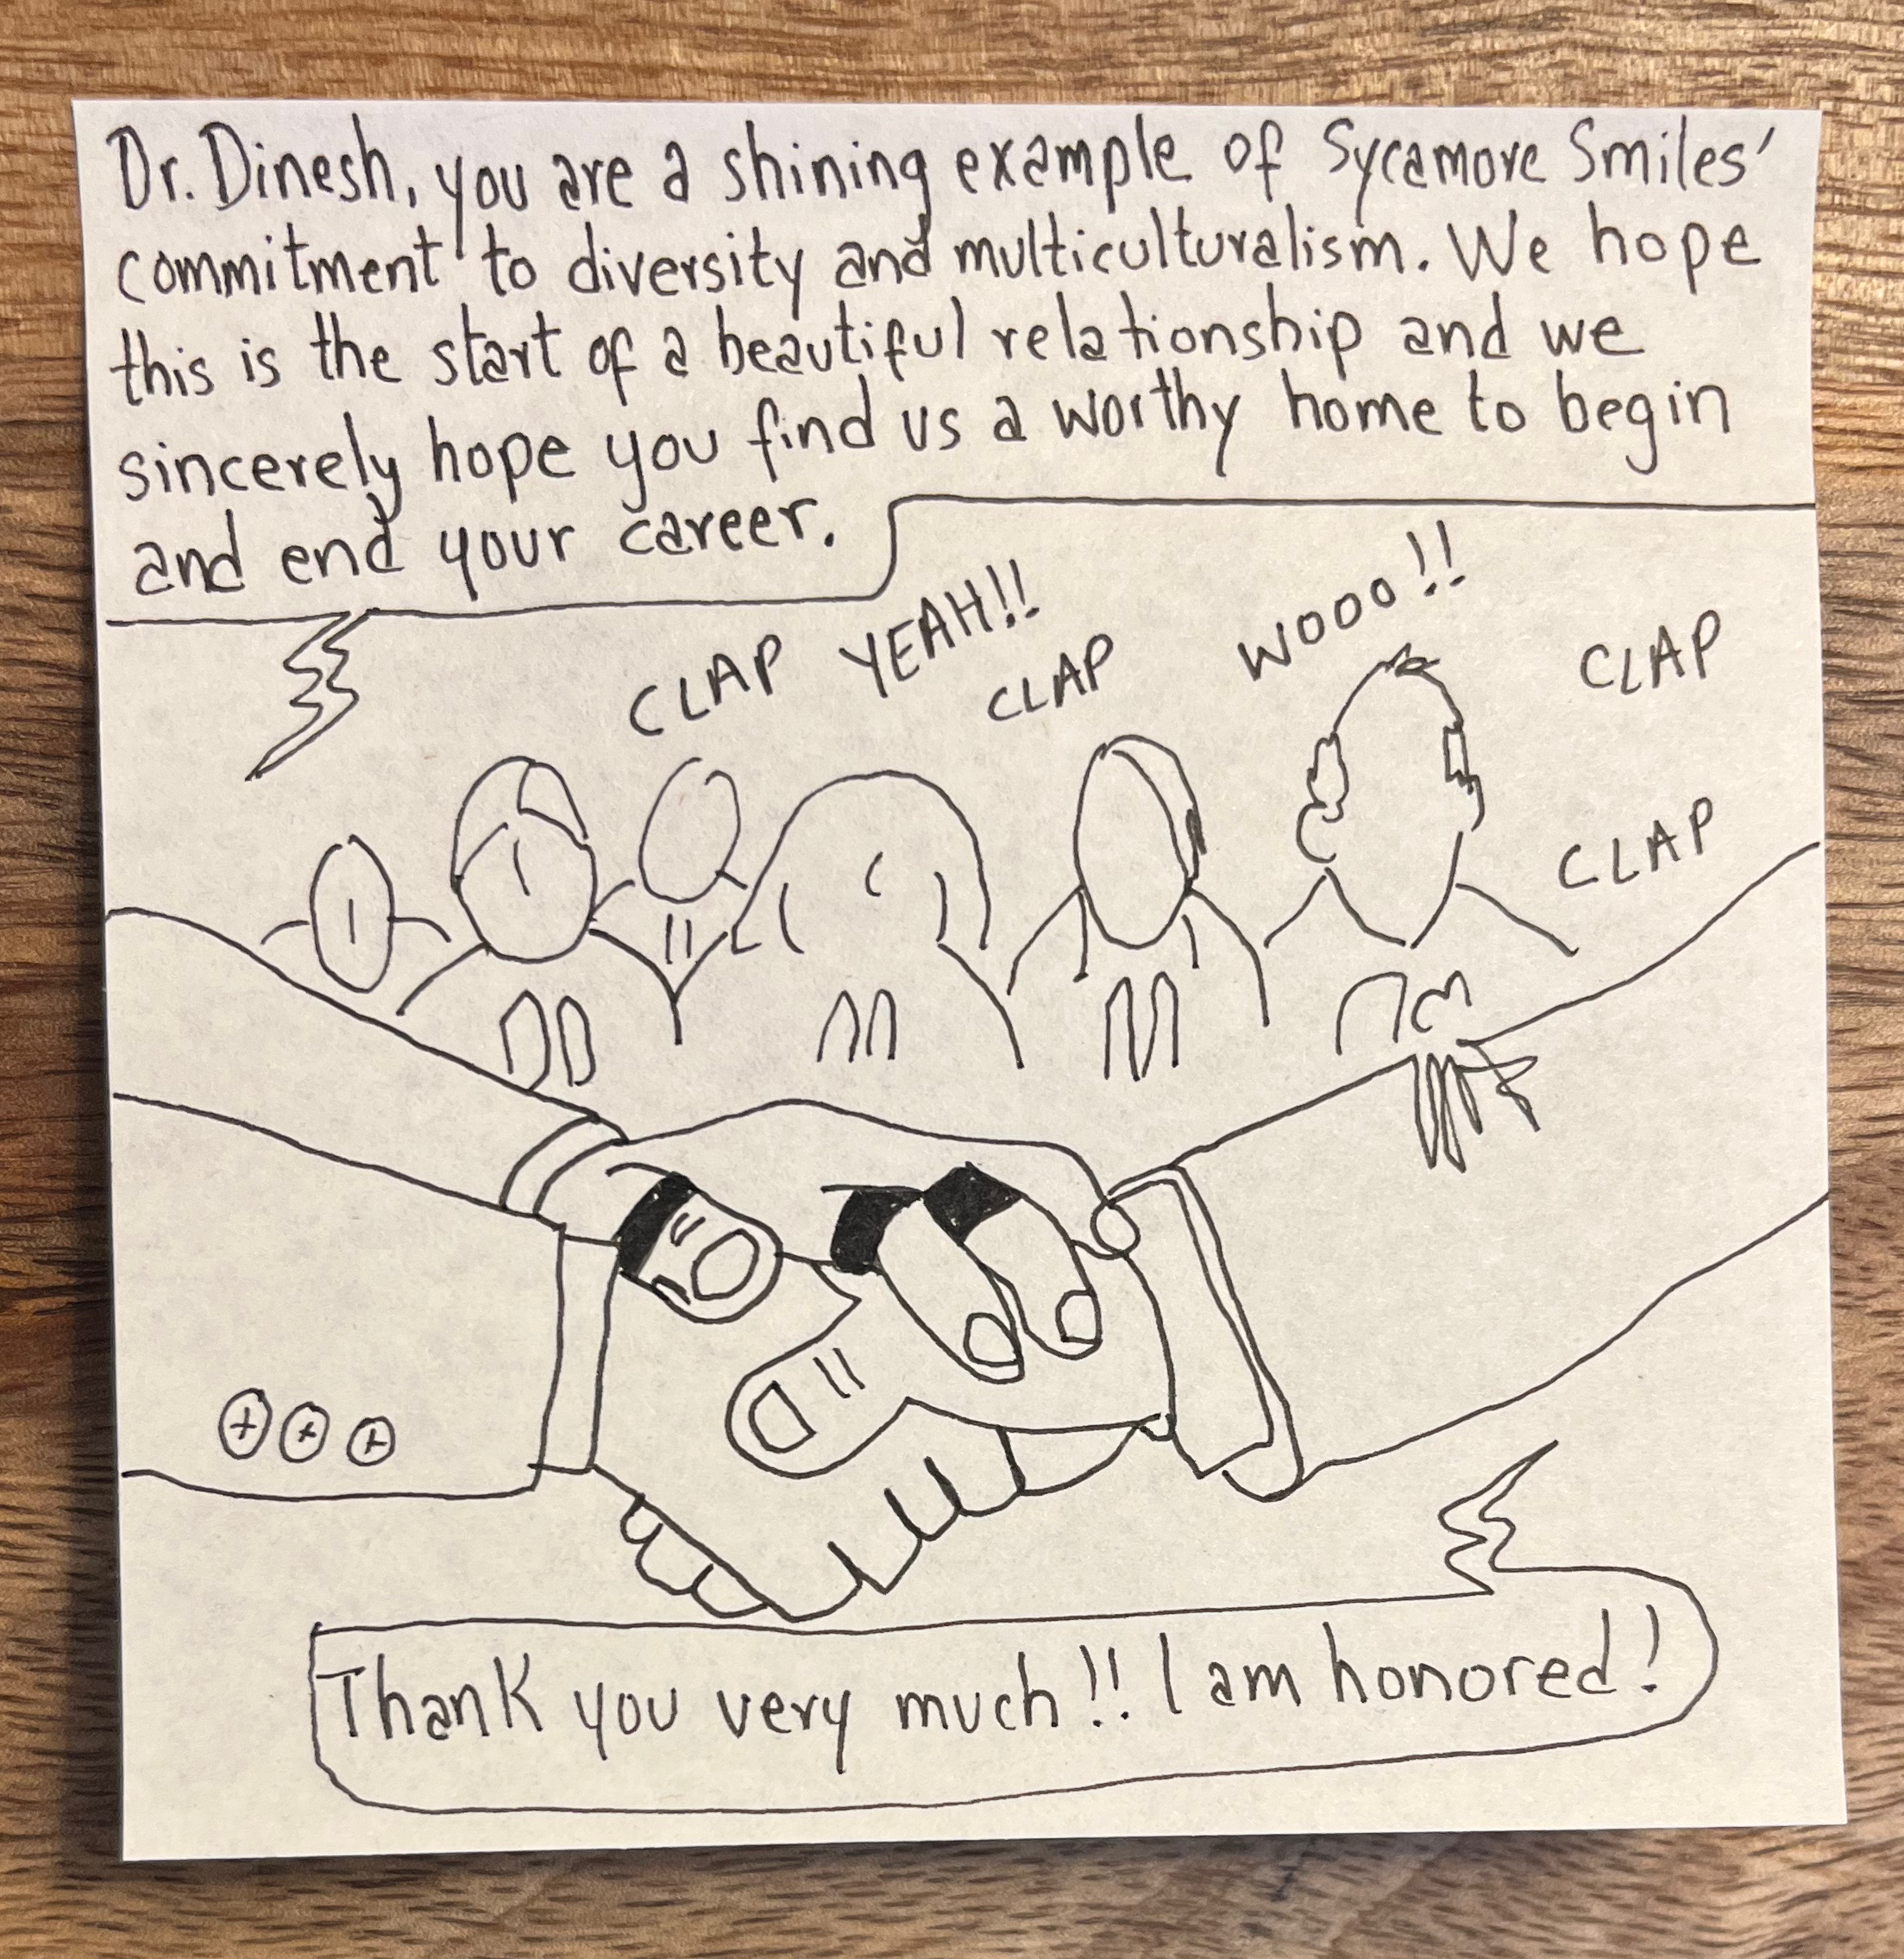 Dr. Dinesh, you are a shining example of Sycamore Smiles'
commitment to diversity and multiculturalism. We hope
this is the start of a beautiful relationship and we
sincerely hope you find us a worthy home to begin
and end your career.
CLAP YEAH!! CLAP WOOO!! CLAP
CLAP
Thank you very much!! I am honored!